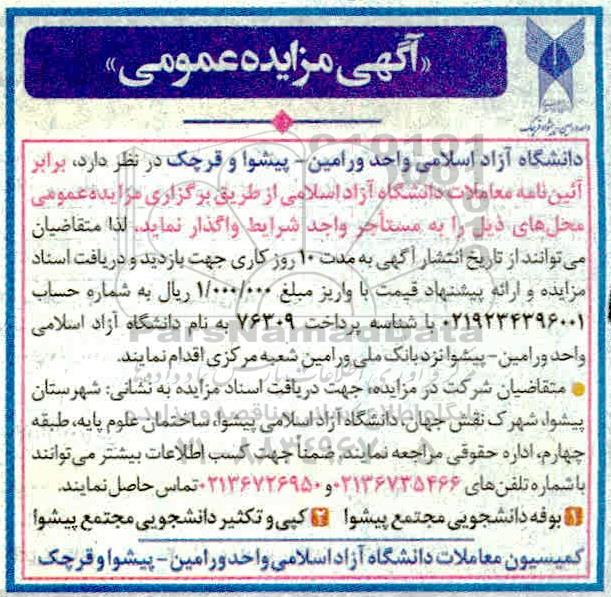 «آگهی مزایده عمومی»
واحد ورامین-پیشوا و قرچک
دانشگاه آزاد اسلامی واحد ورامین- پیشوا و قرچک در نظر دارد، برابر
آئین‌نامه معاملات دانشگاه آزاد اسلامی از طریق برگزاری مزایده عمومی
محل‌های ذیل را به مستأجر واجد شرایط واگذار نماید، لذا متقاضیان
می‌توانند از تاریخ انتشار آگهی به مدت ۱۰ روز کاری جهت بازدید و دریافت اسناد
مزایده و ارائه پیشنهاد قیمت با واریز مبلغ ۱/۰۰۰/۰۰۰ ریال به شماره حساب
۰۲۱۹۲۳۴۳۹۶۰۰۱ با شناسه پرداخت ۷۶۳۰۹ به نام دانشگاه آزاد اسلامی
واحد ورامین- پیشوا نزد بانک ملی ورامین شعبه مرکزی اقدام نمایند.
متقاضیان شرکت در مزایده، جهت دریافت اسناد مزایده به نشانی: شهرستان
پیشوا، شهرک نقش جهان، دانشگاه آزاد اسلامی پیشوا، ساختمان علوم پایه، طبقه
چهارم، اداره حقوقی مراجعه نمایند. ضمناً جهت کسب اطلاعات بیشتر می‌توانند
با شماره تلفن‌های ۰۲۱۳۶۷۳۵۴۶۶ و ۰۲۱۳۶۷۲۶۹۵۰ تماس حاصل نمایند.
۱ بوفه دانشجویی مجتمع پیشوا ۲ کپی و تکثیر دانشجویی مجتمع پیشوا
کمیسیون معاملات دانشگاه آزاد اسلامی واحد ورامین - پیشوا و قرچک
ParsNamadData